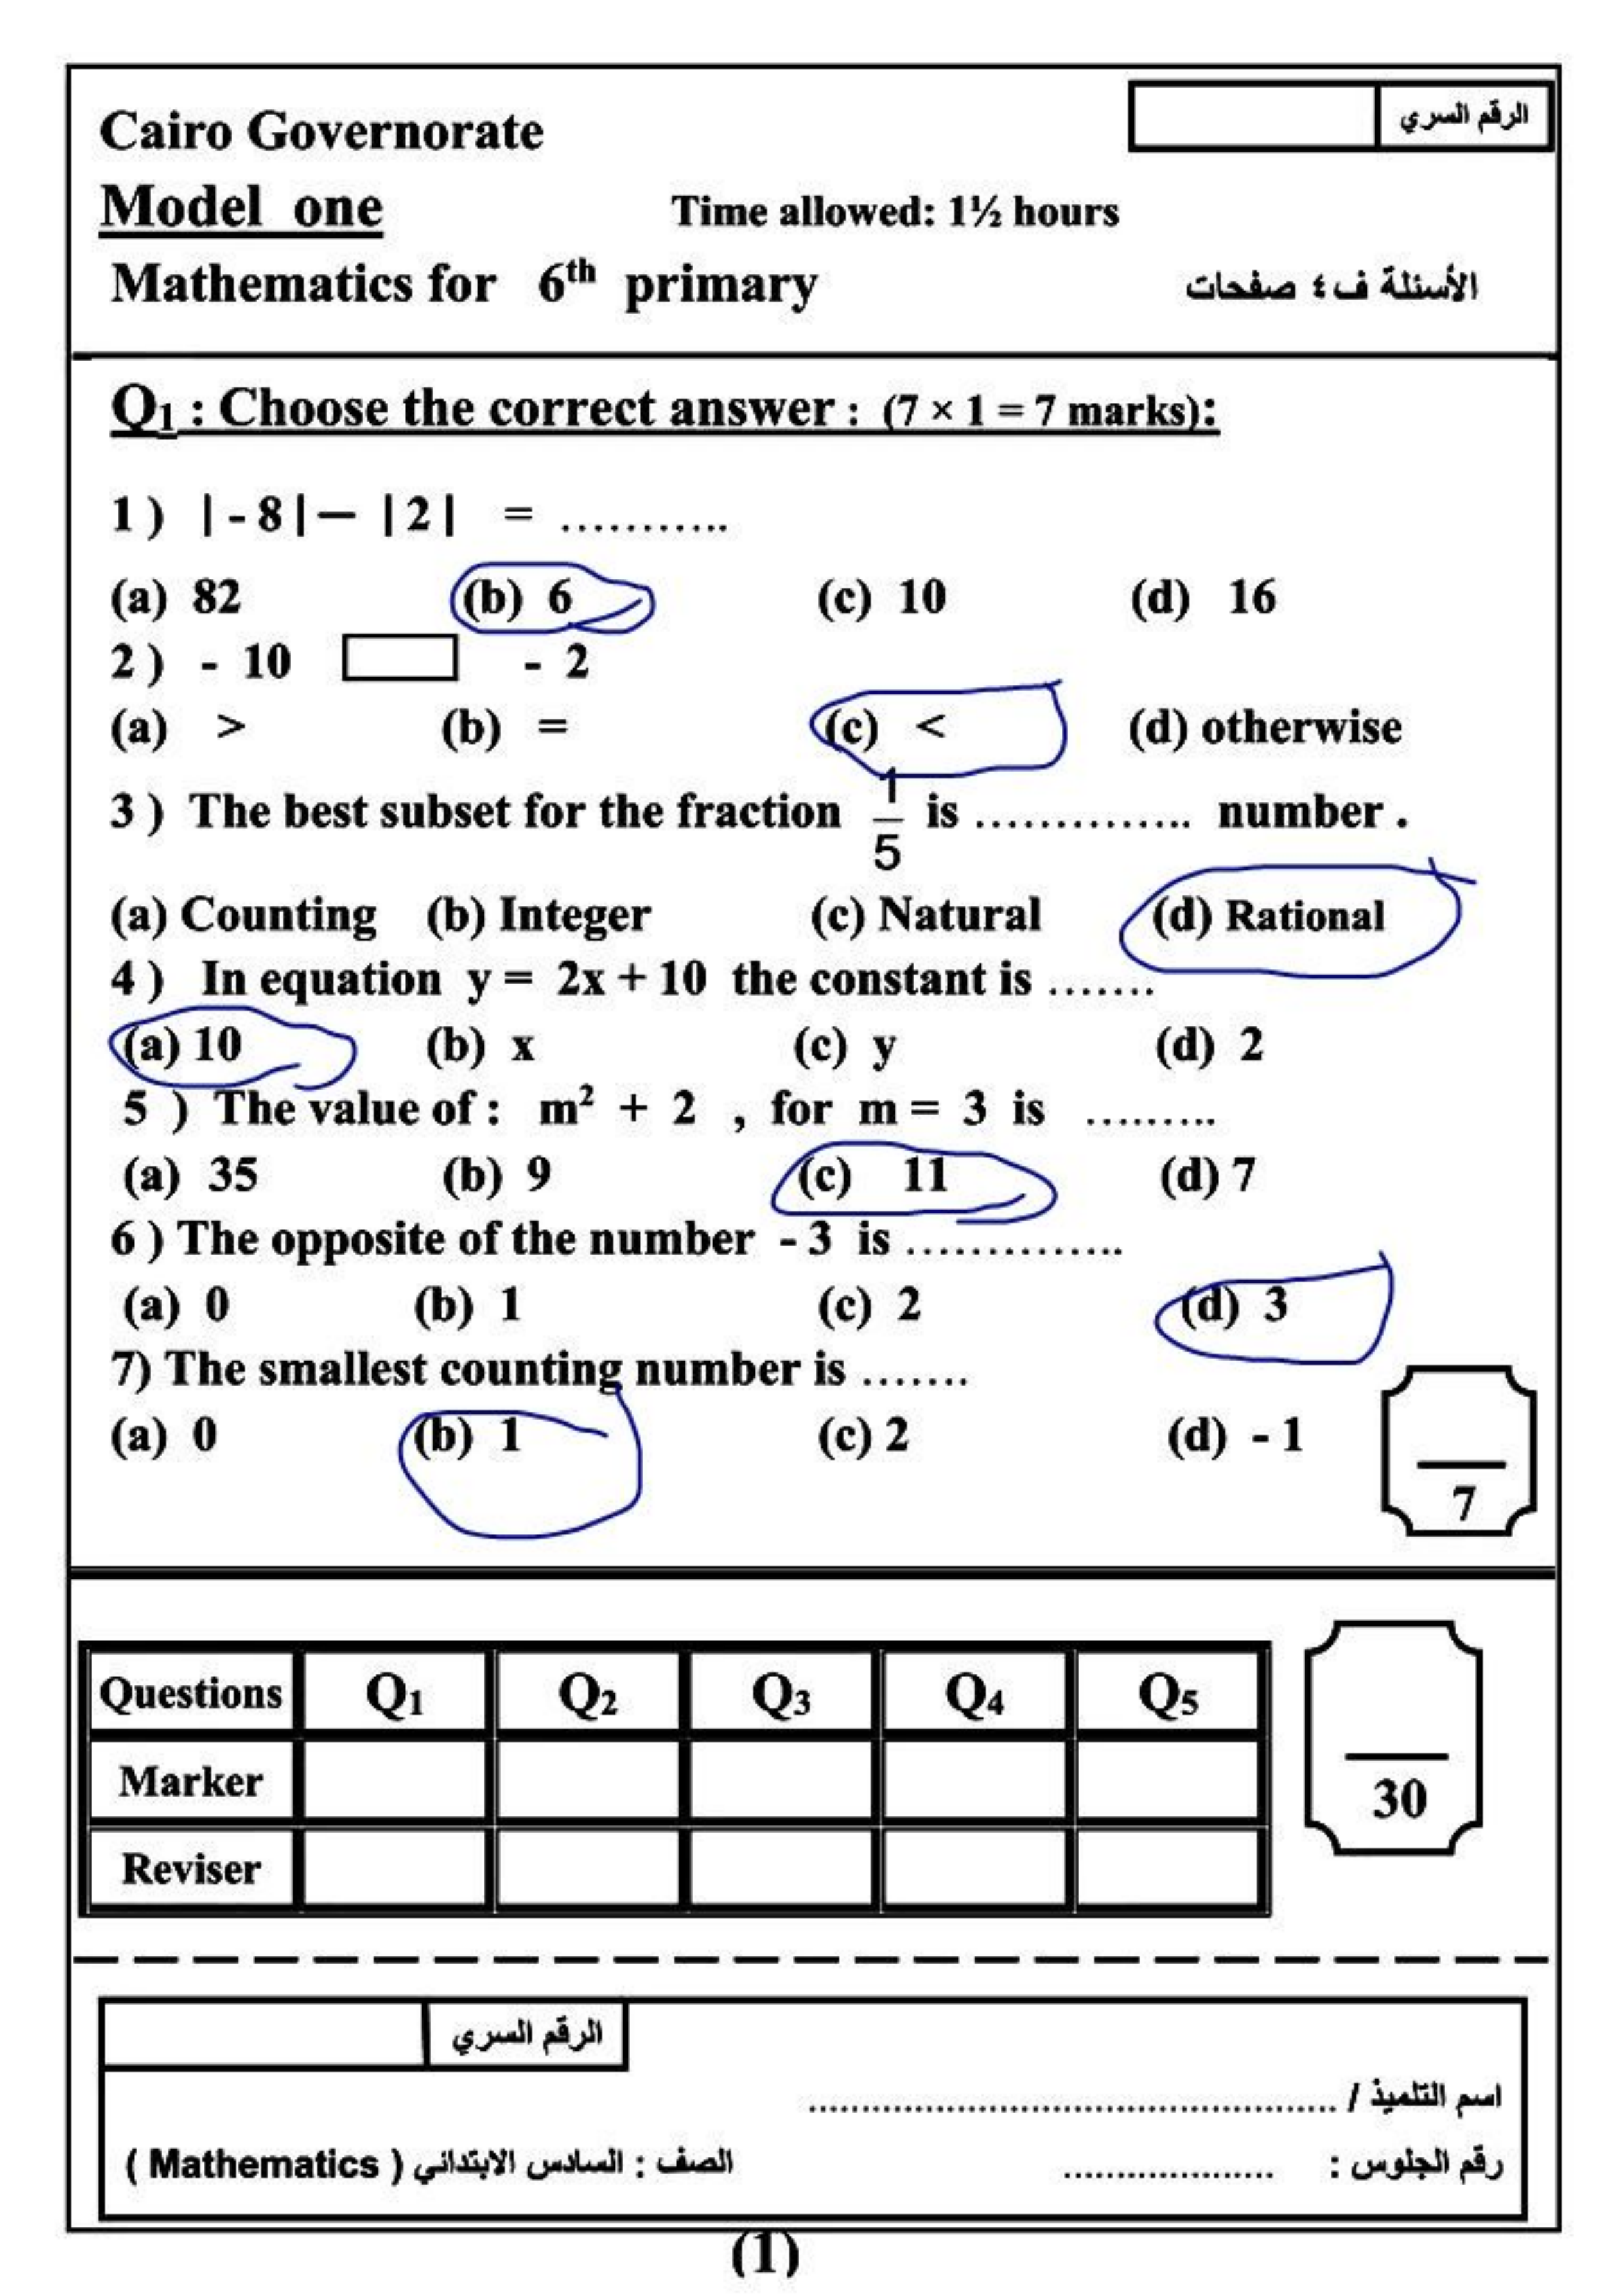 الرقم السري
Cairo Governorate
Model one
Time allowed: 1½ hours
Mathematics for 6th primary
الأسئلة ف ٤ صفحات
Q1 : Choose the correct answer : (7 × 1 = 7 marks):
1 ) | - 8 | — | 2 | = ...........
(a) 82 (b) 6 (c) 10 (d) 16
2 ) - 10 - 2
(a) > (b) = (c) < (d) otherwise
3 ) The best subset for the fraction 1/5 is .............. number .
(a) Counting (b) Integer (c) Natural (d) Rational
4 ) In equation y = 2x + 10 the constant is .......
(a) 10 (b) x (c) y (d) 2
5 ) The value of : m² + 2 , for m = 3 is .........
(a) 35 (b) 9 (c) 11 (d) 7
6 ) The opposite of the number - 3 is ..............
(a) 0 (b) 1 (c) 2 (d) 3
7) The smallest counting number is .......
(a) 0 (b) 1 (c) 2 (d) - 1
7
Questions Q1 Q2 Q3 Q4 Q5
Marker
Reviser
30
الرقم السري
اسم التلميذ / ..................................................
رقم الجلوس : ....................
الصف : السادس الابتدائي ( Mathematics )
(1)